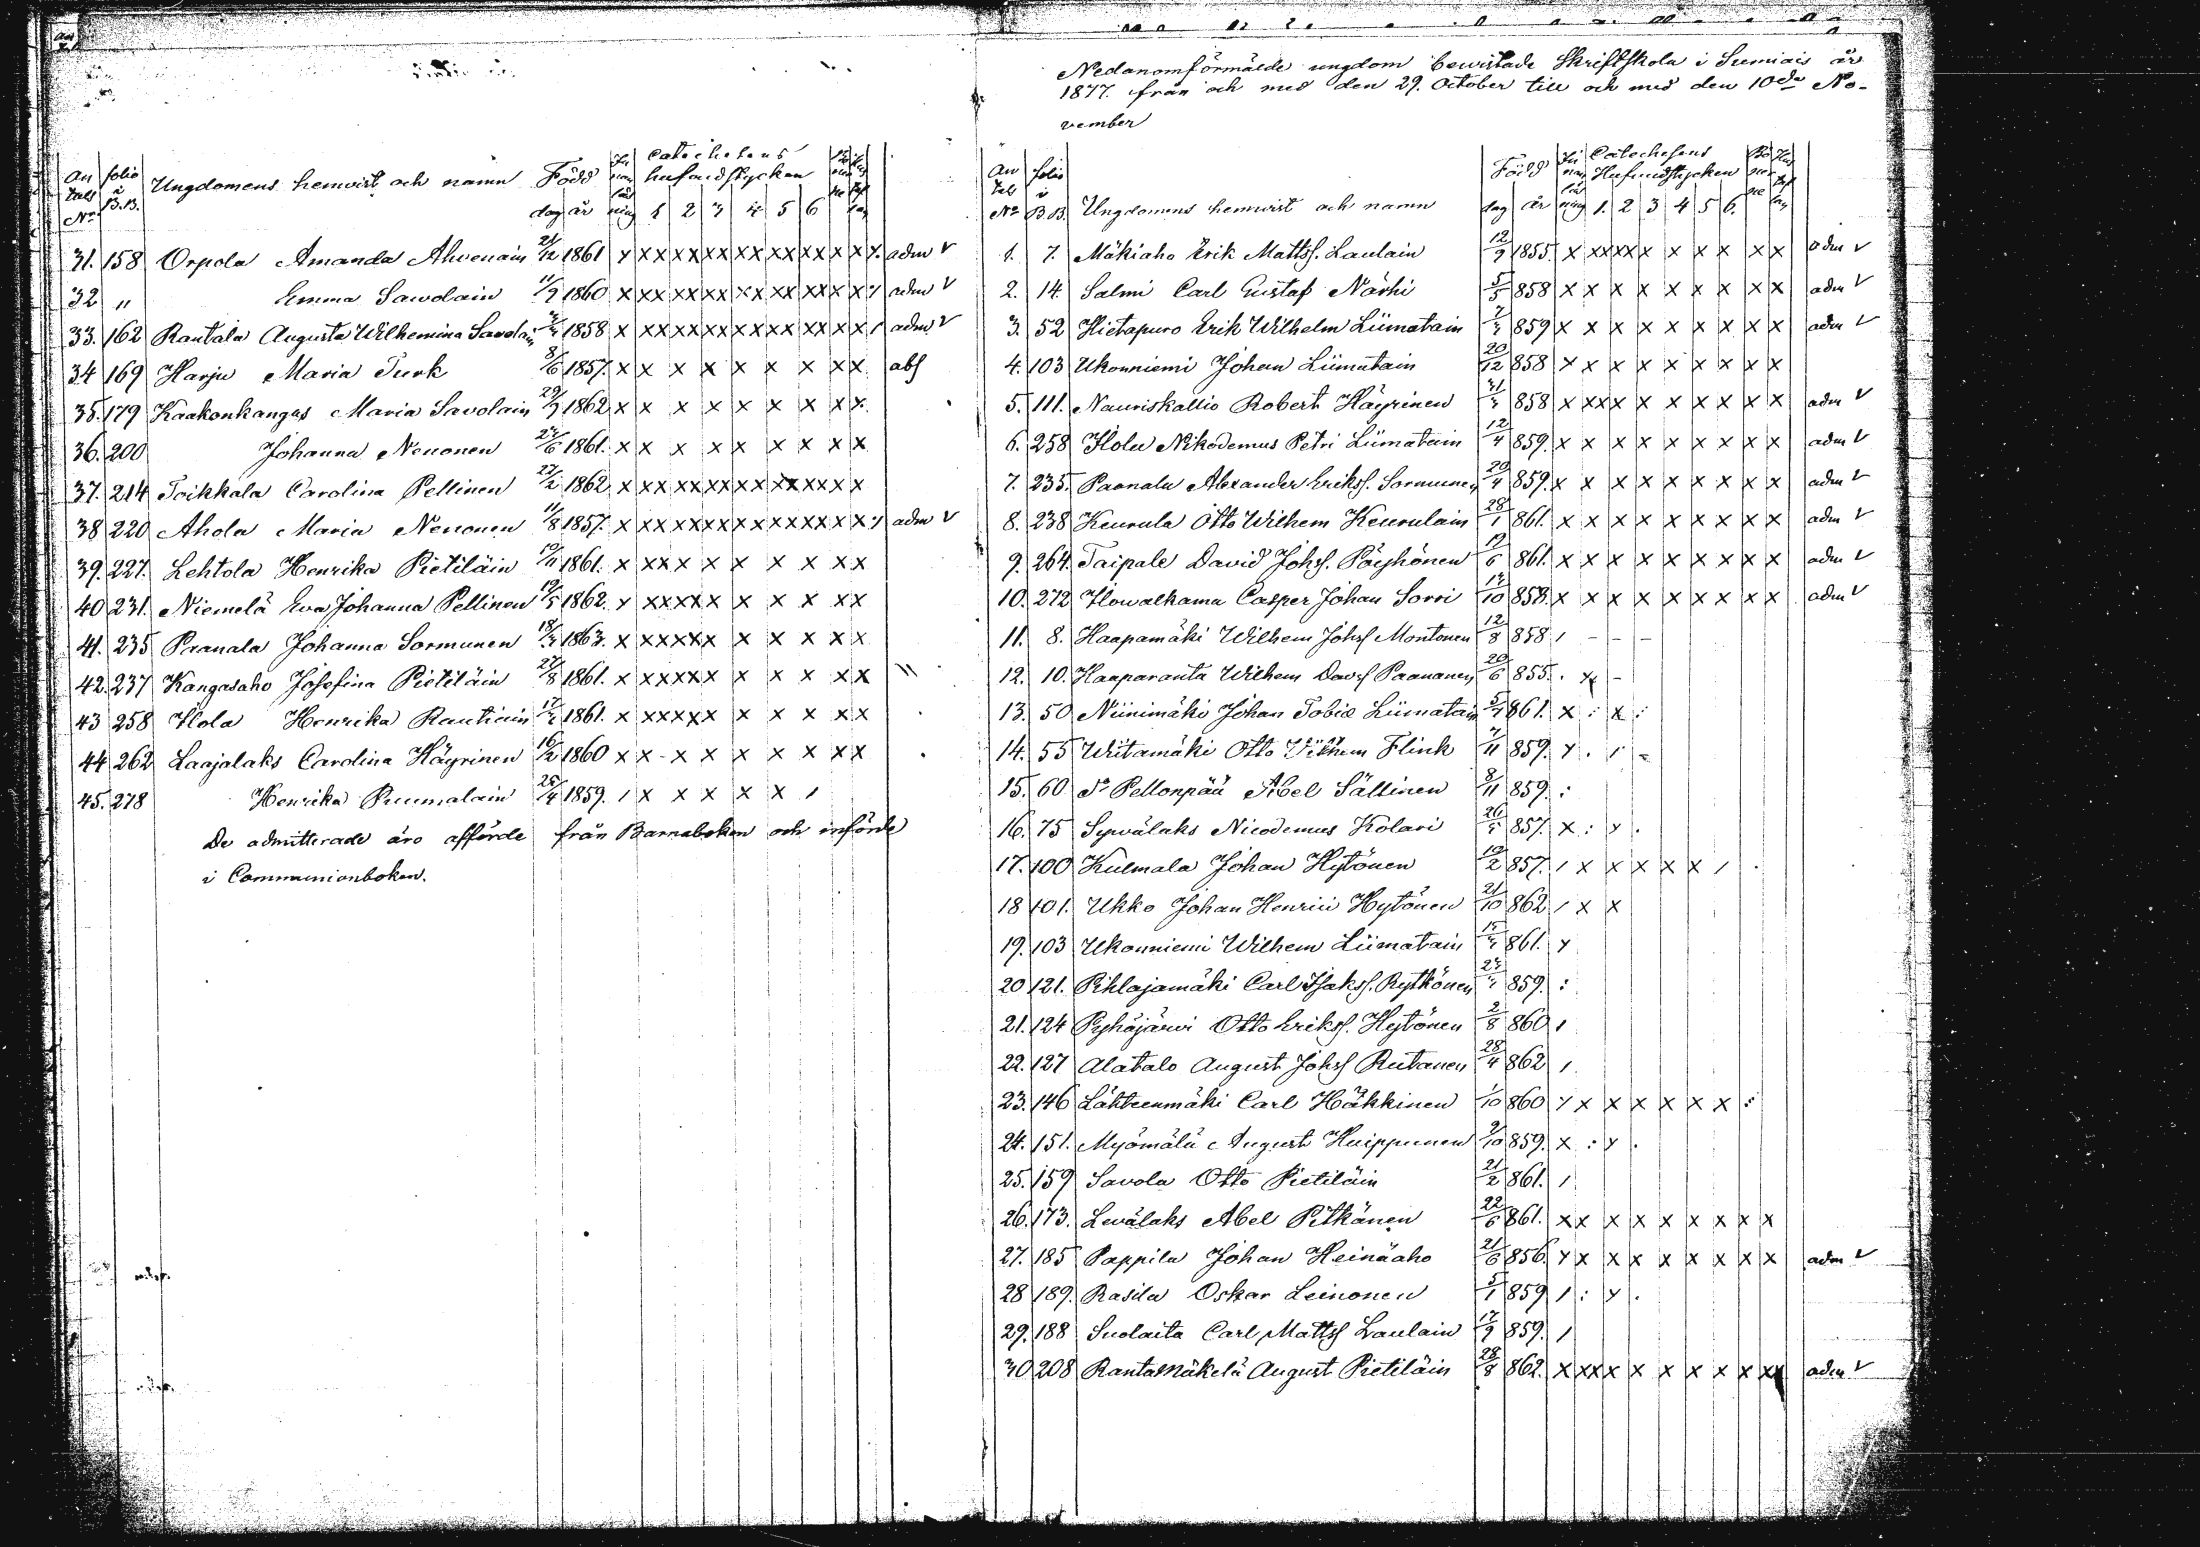 An tals No folio i B.B. Ungdomens hemvist och namn Född dag år Innan läsning Catechesens hufvudstycken 1 2 3 4 5 6
31. 158 Orpola Amanda Ahvenain 21/12 1861 x x x x x x x x x x x x x x adm v
32 " Emma Sawolain 11/9 1860 x x x x x x x x x x x x x x adm v
33. 162 Rantala Augusta Wilhemina Savolain 1858 x x x x x x x x x x x x x x adm v
34 169 Harju Maria Turk 8/6 1857. x x x x x x x x x abs
35. 179 Kaakonkangas Maria Savolain 29/9 1862 x x x x x x x x x
36. 200 Johanna Nenonen 1861. x x x x x x x x x
37. 214 Toikkala Carolina Pellinen 22/2 1862 x x x x x x x x x x x x x
38 220 Ahola Maria Nenonen 11/8 1857. x x x x x x x x x x x x x x adm v
39. 227. Lehtola Henrika Pietiläin 1861. x x x x x x x x x x
40 231. Niemelä Eva Johanna Pellinen 19/5 1862. x x x x x x x x x x x
41. 235 Paanala Johanna Sormunen 1863. x x x x x x x x x x x
42. 237 Kangasaho Josefina Pietiläin 27/8 1861. x x x x x x x x x x x
43 258 Ilola Henrika Rautiain 1861. x x x x x x x x x x x
44 262 Laajalaks Carolina Häyrinen 16/2 1860 x x - x x x x x x x
45. 278 Henrika Puumalain 25/4 1859. / x x x x x /
De admitterade äro afförde från Barnaboken och införde
i Communionboken.
Nedanomförmälde ungdom bewistade Skriftskola i Sumiais år
1877. från och med den 29. October till och med den 10de No-
vember
An tals No folio i B.B. Ungdomens hemvist och namn Född dag år Innan läsning Catechesens Hufvudstycken 1. 2 3 4 5 6.
1. 7. Mäkiaho Erik Mattss. Laulain 12/9 1855. x x x x x x x x x x x adm v
2. 14. Salmi Carl Gustaf Närhi 5/5 858 x x x x x x x x x adm v
3. 52 Hietapuro Erik Wilhelm Liimatain 859 x x x x x x x x x adm v
4. 103 Ukonniemi Johan Liimatain 20/12 858 x x x x x x x x x
5. 111. Nauriskallio Robert Häyrinen 858 x x x x x x x x x x adm v
6. 258 Ilola Nikodemus Petri Liimatain 12/4 859. x x x x x x x x x adm v
7. 235. Paanala Alexander Erikss. Sormunen 20/4 859. x x x x x x x x x adm v
8. 238 Keurula Otto Wilhem Keurulain 28/1 861. x x x x x x x x x adm v
9. 264. Taipale David Johss. Pöyhönen 19/6 861. x x x x x x x x x adm v
10. 272 Ilowalkama Casper Johan Sorri 858. x x x x x x x x x adm v
11. 8. Haapamäki Wilhem Johss Montonen 12/8 858 / - - -
12. 10. Haaparanta Wilhem Davss Paananen 20/6 855. . x -
13. 50 Niinimäki Johan Tobias Liimatain 861. x : x :
14. 55 Wiitamäki Otto Vilhem Flink 859. x . / -
15. 60 Pellonpää Abel Sällinen 8/11 859. :
16. 75 Sywälaks Nicodemus Kolari 857. x : x .
17. 100 Kulmala Johan Hytönen 857. / x x x x x / .
18 101. Ukko Johan Henric Hytönen 21/10 862 / x x
19. 103 Ukonniemi Wilhem Liimatain 861. x
20 121. Pihlajamäki Carl Isakss. Rytkönen 859. :
21. 124 Pyhäjärwi Otto Erikss. Hytönen 2/8 860 /
22. 127 Alatalo August Johss Rutanen 28/4 862 /
23. 146 Lähteenmäki Carl Häkkinen 1/10 860 x x x x x x x :
24. 151. Myömälä August Huippunen 9/10 859. x : x .
25. 159 Savola Otto Pietiläin 21/2 861. /
26. 173. Lewälaks Abel Pitkänen 22/6 861. x x x x x x x x x
27. 185 Pappila Johan Heinäaho 21/6 856. x x x x x x x x x adm v
28 189. Rasila Oskar Leinonen 5/1 859 / : x .
29. 188 Suolaita Carl Mattss Laulain 17/9 859. /
30 208 Rantamäkelä August Pietiläin 28/8 862. x x x x x x x x x x x adm v